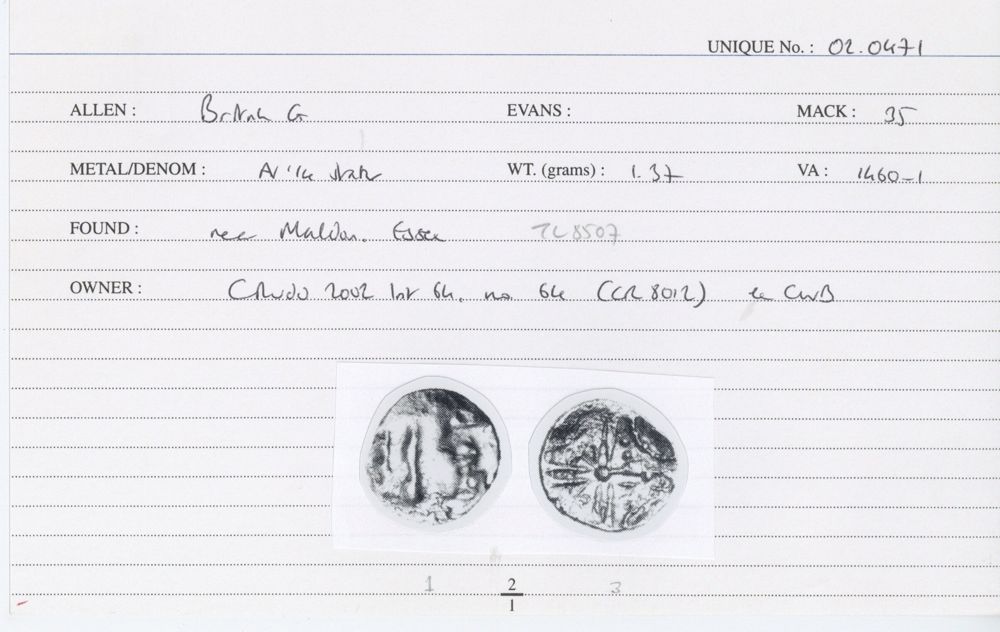 UNIQUE No. : 02.0471
ALLEN : British G EVANS : MACK : 35
METAL/DENOM : AV 1/4 stater WT. (grams) : 1.37 VA : 1460-1
FOUND : near Maldon. Essex TL 8507
OWNER : 2002 64. no. 64 (CR 8012) ex CWB
1 2/1 3